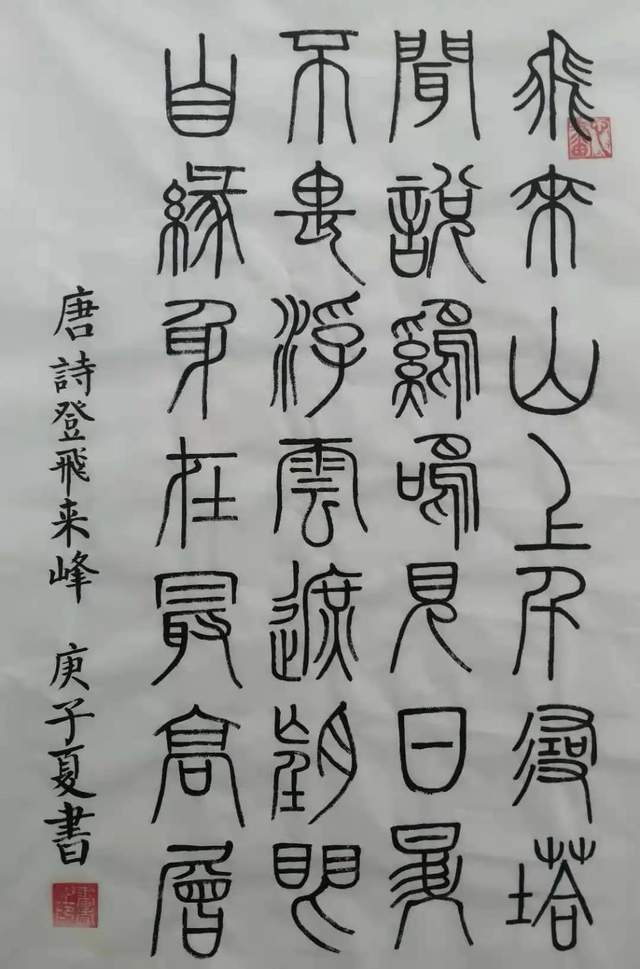 飛來山上千尋塔
聞說鷄鳴見日昇
不畏浮雲遮望眼
自緣身在最高層
唐詩登飛来峰 庚子夏書